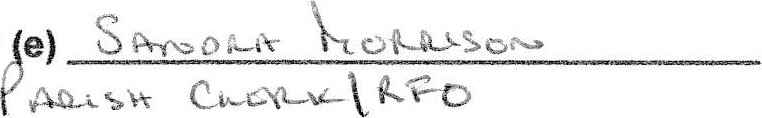 (e) SANDRA MORRISON
PARISH CLERK/RFO